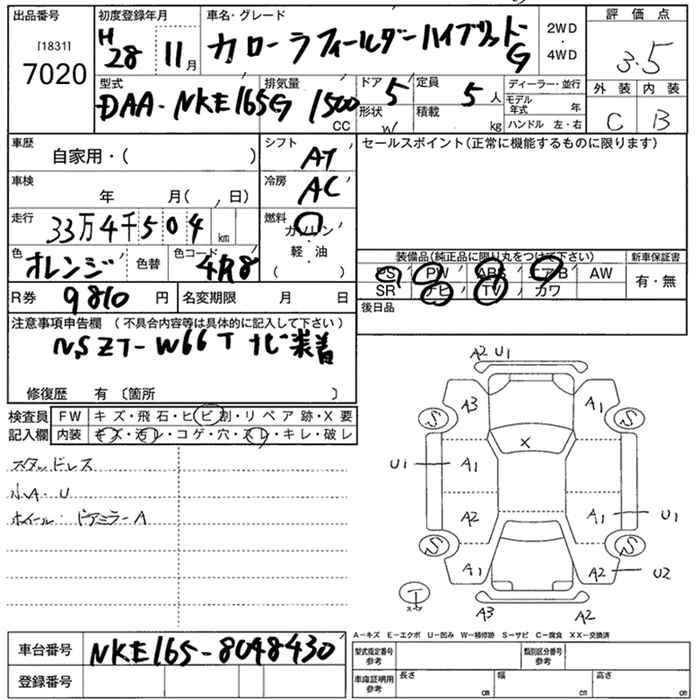 出品番号
[1831]
7020
初度登録年月
H28 11月
車名・グレード
カローラフィールダーハイブリッド G
2WD
・
4WD
評価点
3.5
外装 内装
C B
型式
DAA-NKE165G
排気量
1500 CC
ドア 5
形状 W
定員 5 人
積載 kg
ディーラー・並行
モデル年式 年
ハンドル 左・右
車歴
自家用・( )
シフト
AT
セールスポイント(正常に機能するものに限ります)
車検
年 月( , 日)
冷房
AC
走行
33万4千504 km
燃料
ガソリン
・
軽・油
( )
色
オレンジ
色替
色コード
4R8
装備品(純正品に限り丸をつけて下さい)
新車保証書
PS PW ABS エアB AW
SR ナビ TV カワ
有・無
R券 9810 円
名変期限 月 日
後日品
注意事項申告欄 (不具合内容等は具体的に記入して下さい)
NSZT-W66T ナビ装着
修復歴 有 〔箇所 〕
検査員記入欄
FW キズ・飛石・ヒビ割・リペア跡・X要
内装 キズ・汚レ・コゲ・穴・スレ・キレ・破レ
スタッドレス
小A・U
ホイール・ドアミラーA
A2 U1
A3 A1
S S
X
U1 A1
A2 A1 U1
S S
A1 A2 U2
T
スペア
A3 A2
A-キズ E-エクボ U-凹み W-補修跡 S-サビ C-腐食 XX-交換済
車台番号
NKE165-8048430
登録番号
型式指定番号 参考
類別区分番号 参考
車庫証明用 参考
長さ cm
幅 cm
高さ cm